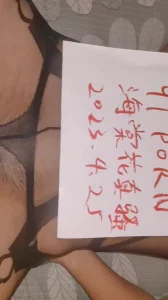 91PORN
海棠花真骚
2023.4.25